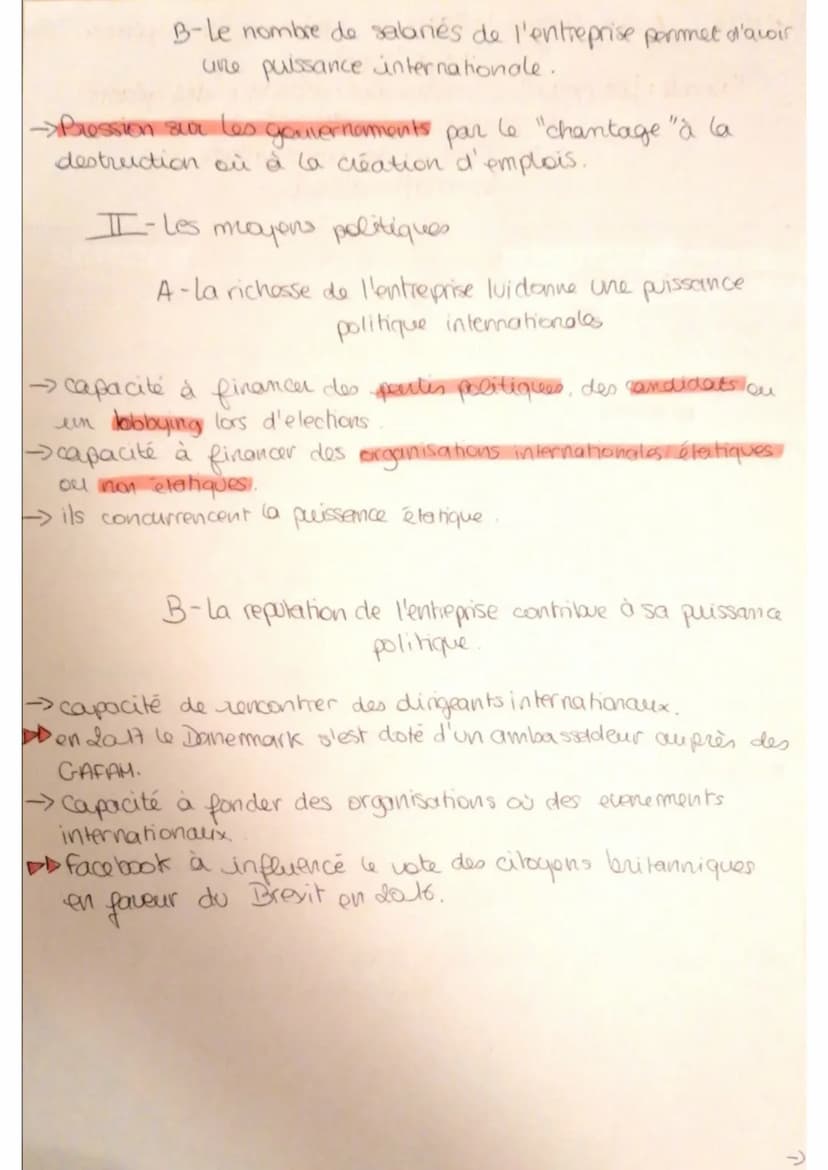 B-Le nombre de salariés de l'entreprise permet d'avoir
une puissance internationale.
→Pression sur les gouvernements par le "chantage" à la
destruction où à la création d'emplois.
II-Les moyens politiques
A-La richesse de l'entreprise lui donne une puissance
politique internationales
→ capacité à financer des partis politiques, des candidats ou
un lobbying lors d'elections.
→capacité à financer des organisations internationales étatiques
ou non étatiques.
→ ils concurrencent la puissance étatique.
B-La reputation de l'entreprise contribue à sa puissance
politique.
→capacité de rencontrer des dirigeants internationaux.
en 2017 le Danemark s'est doté d'un ambassadeur auprès des
GAFAM.
→ Capacité à fonder des organisations où des evenements
internationaux.
Facebook à influencé le vote des citoyens britanniques
en faveur du Brexit en 2016.
→